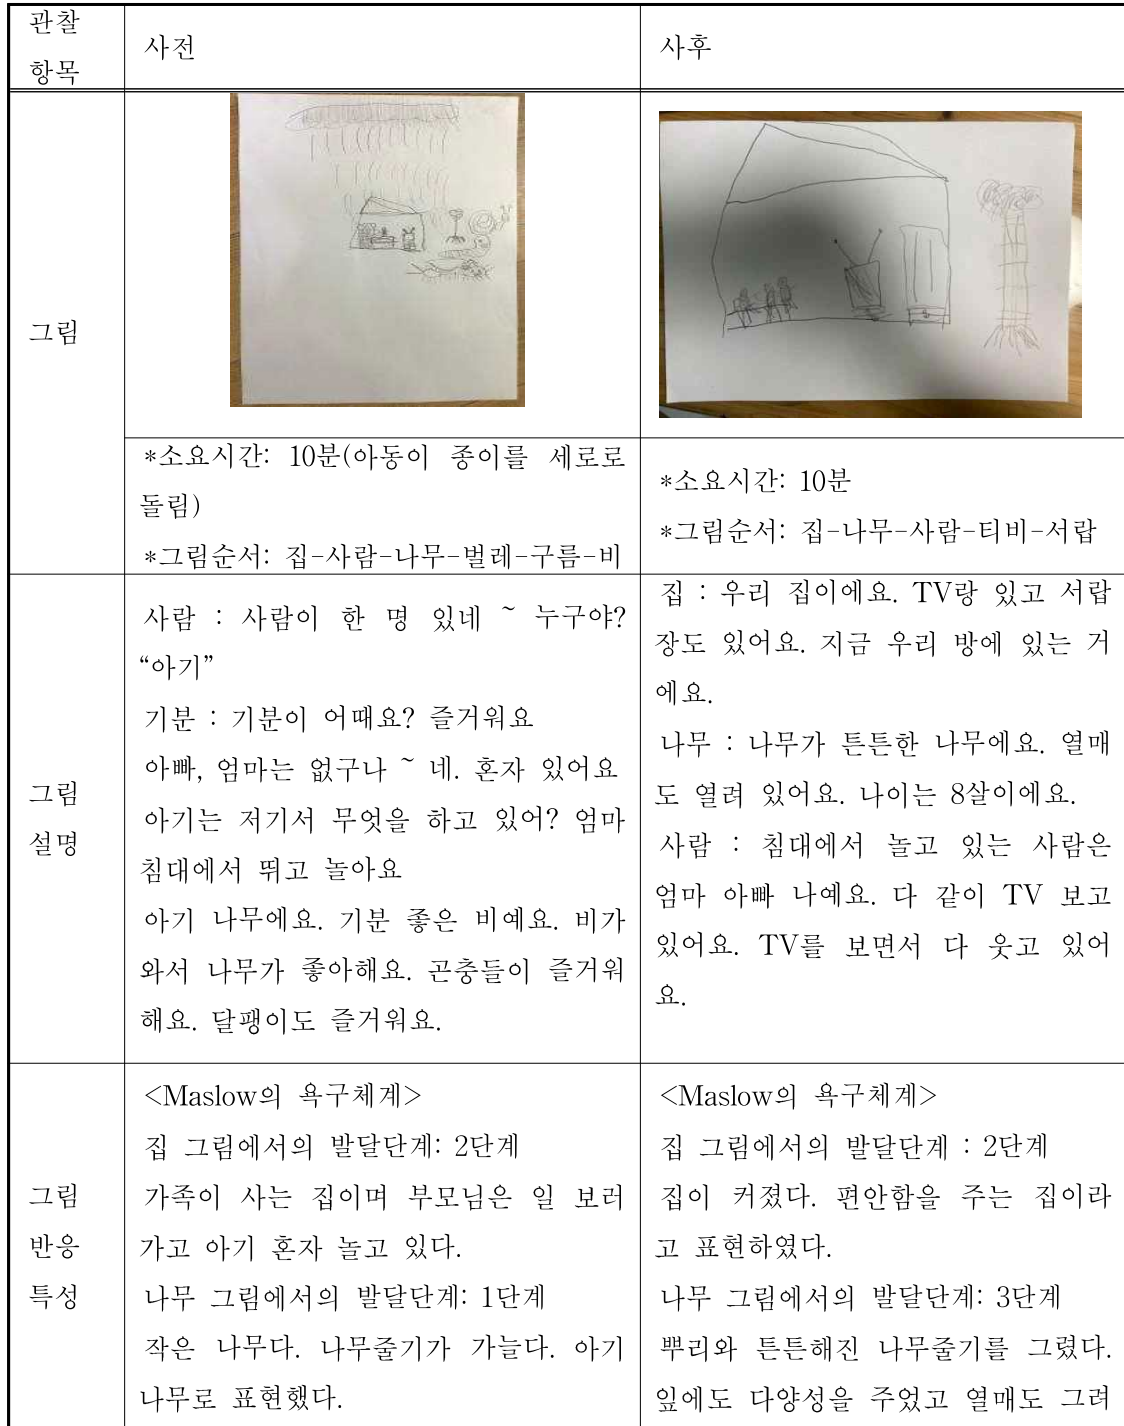 관찰
항목
사전
사후
그림
*소요시간: 10분(아동이 종이를 세로로
돌림)
*그림순서: 집-사람-나무-벌레-구름-비
*소요시간: 10분
*그림순서: 집-나무-사람-티비-서랍
그림
설명
사람 : 사람이 한 명 있네 ~ 누구야?
“아기”
기분 : 기분이 어때요? 즐거워요
아빠, 엄마는 없구나 ~ 네. 혼자 있어요
아기는 저기서 무엇을 하고 있어? 엄마
침대에서 뛰고 놀아요
아기 나무에요. 기분 좋은 비예요. 비가
와서 나무가 좋아해요. 곤충들이 즐거워
해요. 달팽이도 즐거워요.
집 : 우리 집이에요. TV랑 있고 서랍
장도 있어요. 지금 우리 방에 있는 거
에요.
나무 : 나무가 튼튼한 나무에요. 열매
도 열려 있어요. 나이는 8살이에요.
사람 : 침대에서 놀고 있는 사람은
엄마 아빠 나예요. 다 같이 TV 보고
있어요. TV를 보면서 다 웃고 있어
요.
그림
반응
특성
<Maslow의 욕구체계>
집 그림에서의 발달단계: 2단계
가족이 사는 집이며 부모님은 일 보러
가고 아기 혼자 놀고 있다.
나무 그림에서의 발달단계: 1단계
작은 나무다. 나무줄기가 가늘다. 아기
나무로 표현했다.
<Maslow의 욕구체계>
집 그림에서의 발달단계 : 2단계
집이 커졌다. 편안함을 주는 집이라
고 표현하였다.
나무 그림에서의 발달단계: 3단계
뿌리와 튼튼해진 나무줄기를 그렸다.
잎에도 다양성을 주었고 열매도 그려